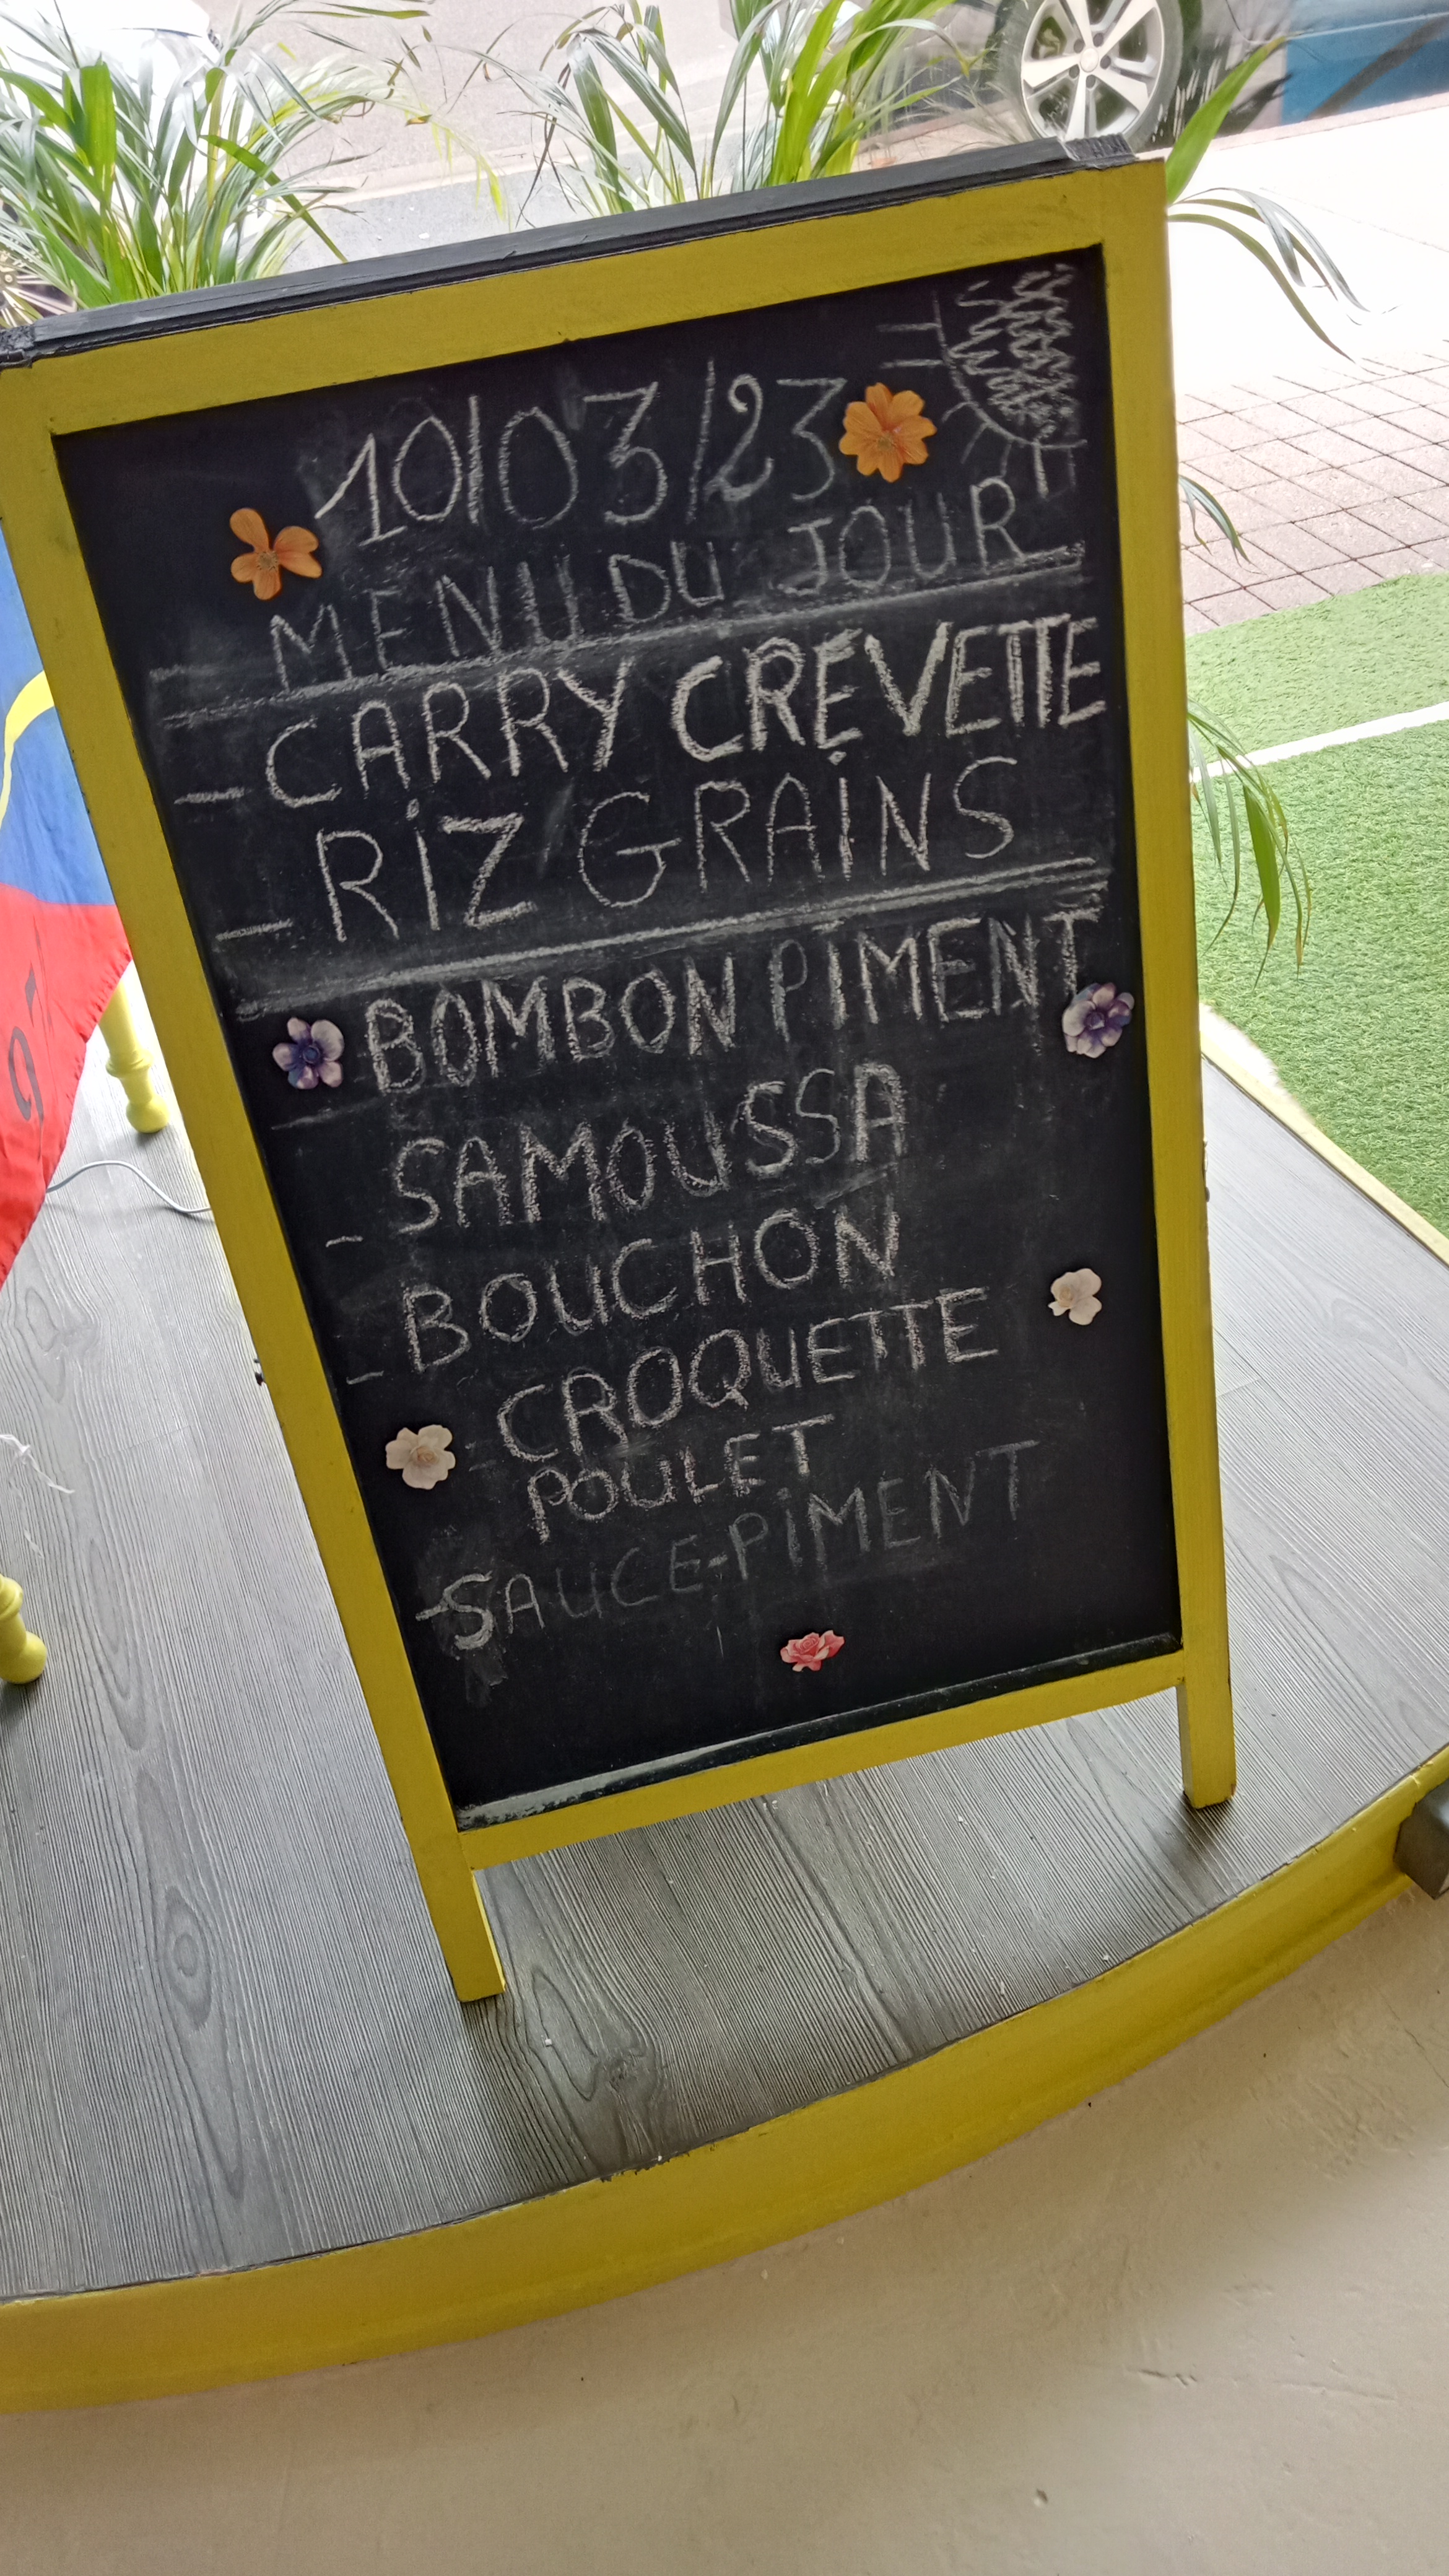 10/03/23
MENU DU JOUR
- CARRY CREVETTE
- RIZ GRAINS
BOMBON PIMENT
- SAMOUSSA
- BOUCHON
- CROQUETTE
POULET
- SAUCE-PIMENT